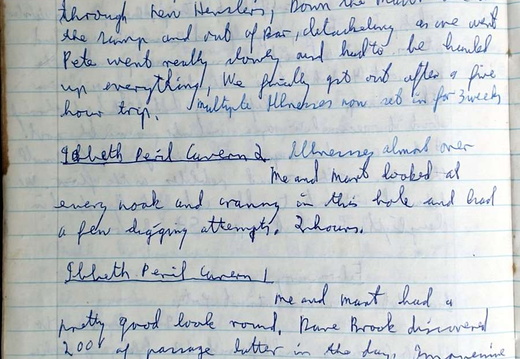 through New Henslers, Down the
the ramp and out of Bar, detackeling as we went
Pete went really slowly and had to be hauled
up everything, We finally got out after a five
hour trip. Multiple Illnesses now set in for 3 weeks
Ibbeth Peril Cavern 2. Illnesses almost over
Me and Mart looked at
every nook and cranny in this hole and had
a few digging attempts. 2 hours.
Ibbeth Peril Cavern 1
me and mart had a
pretty good look round. Dave Brook discovered
200' of passage latter in the day.